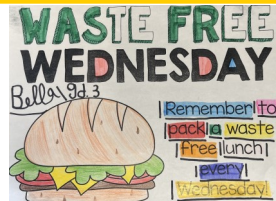 WASTE FREE
WEDNESDAY
Bella gd.3
Remember to
pack a waste
free lunch
every
Wednesday!